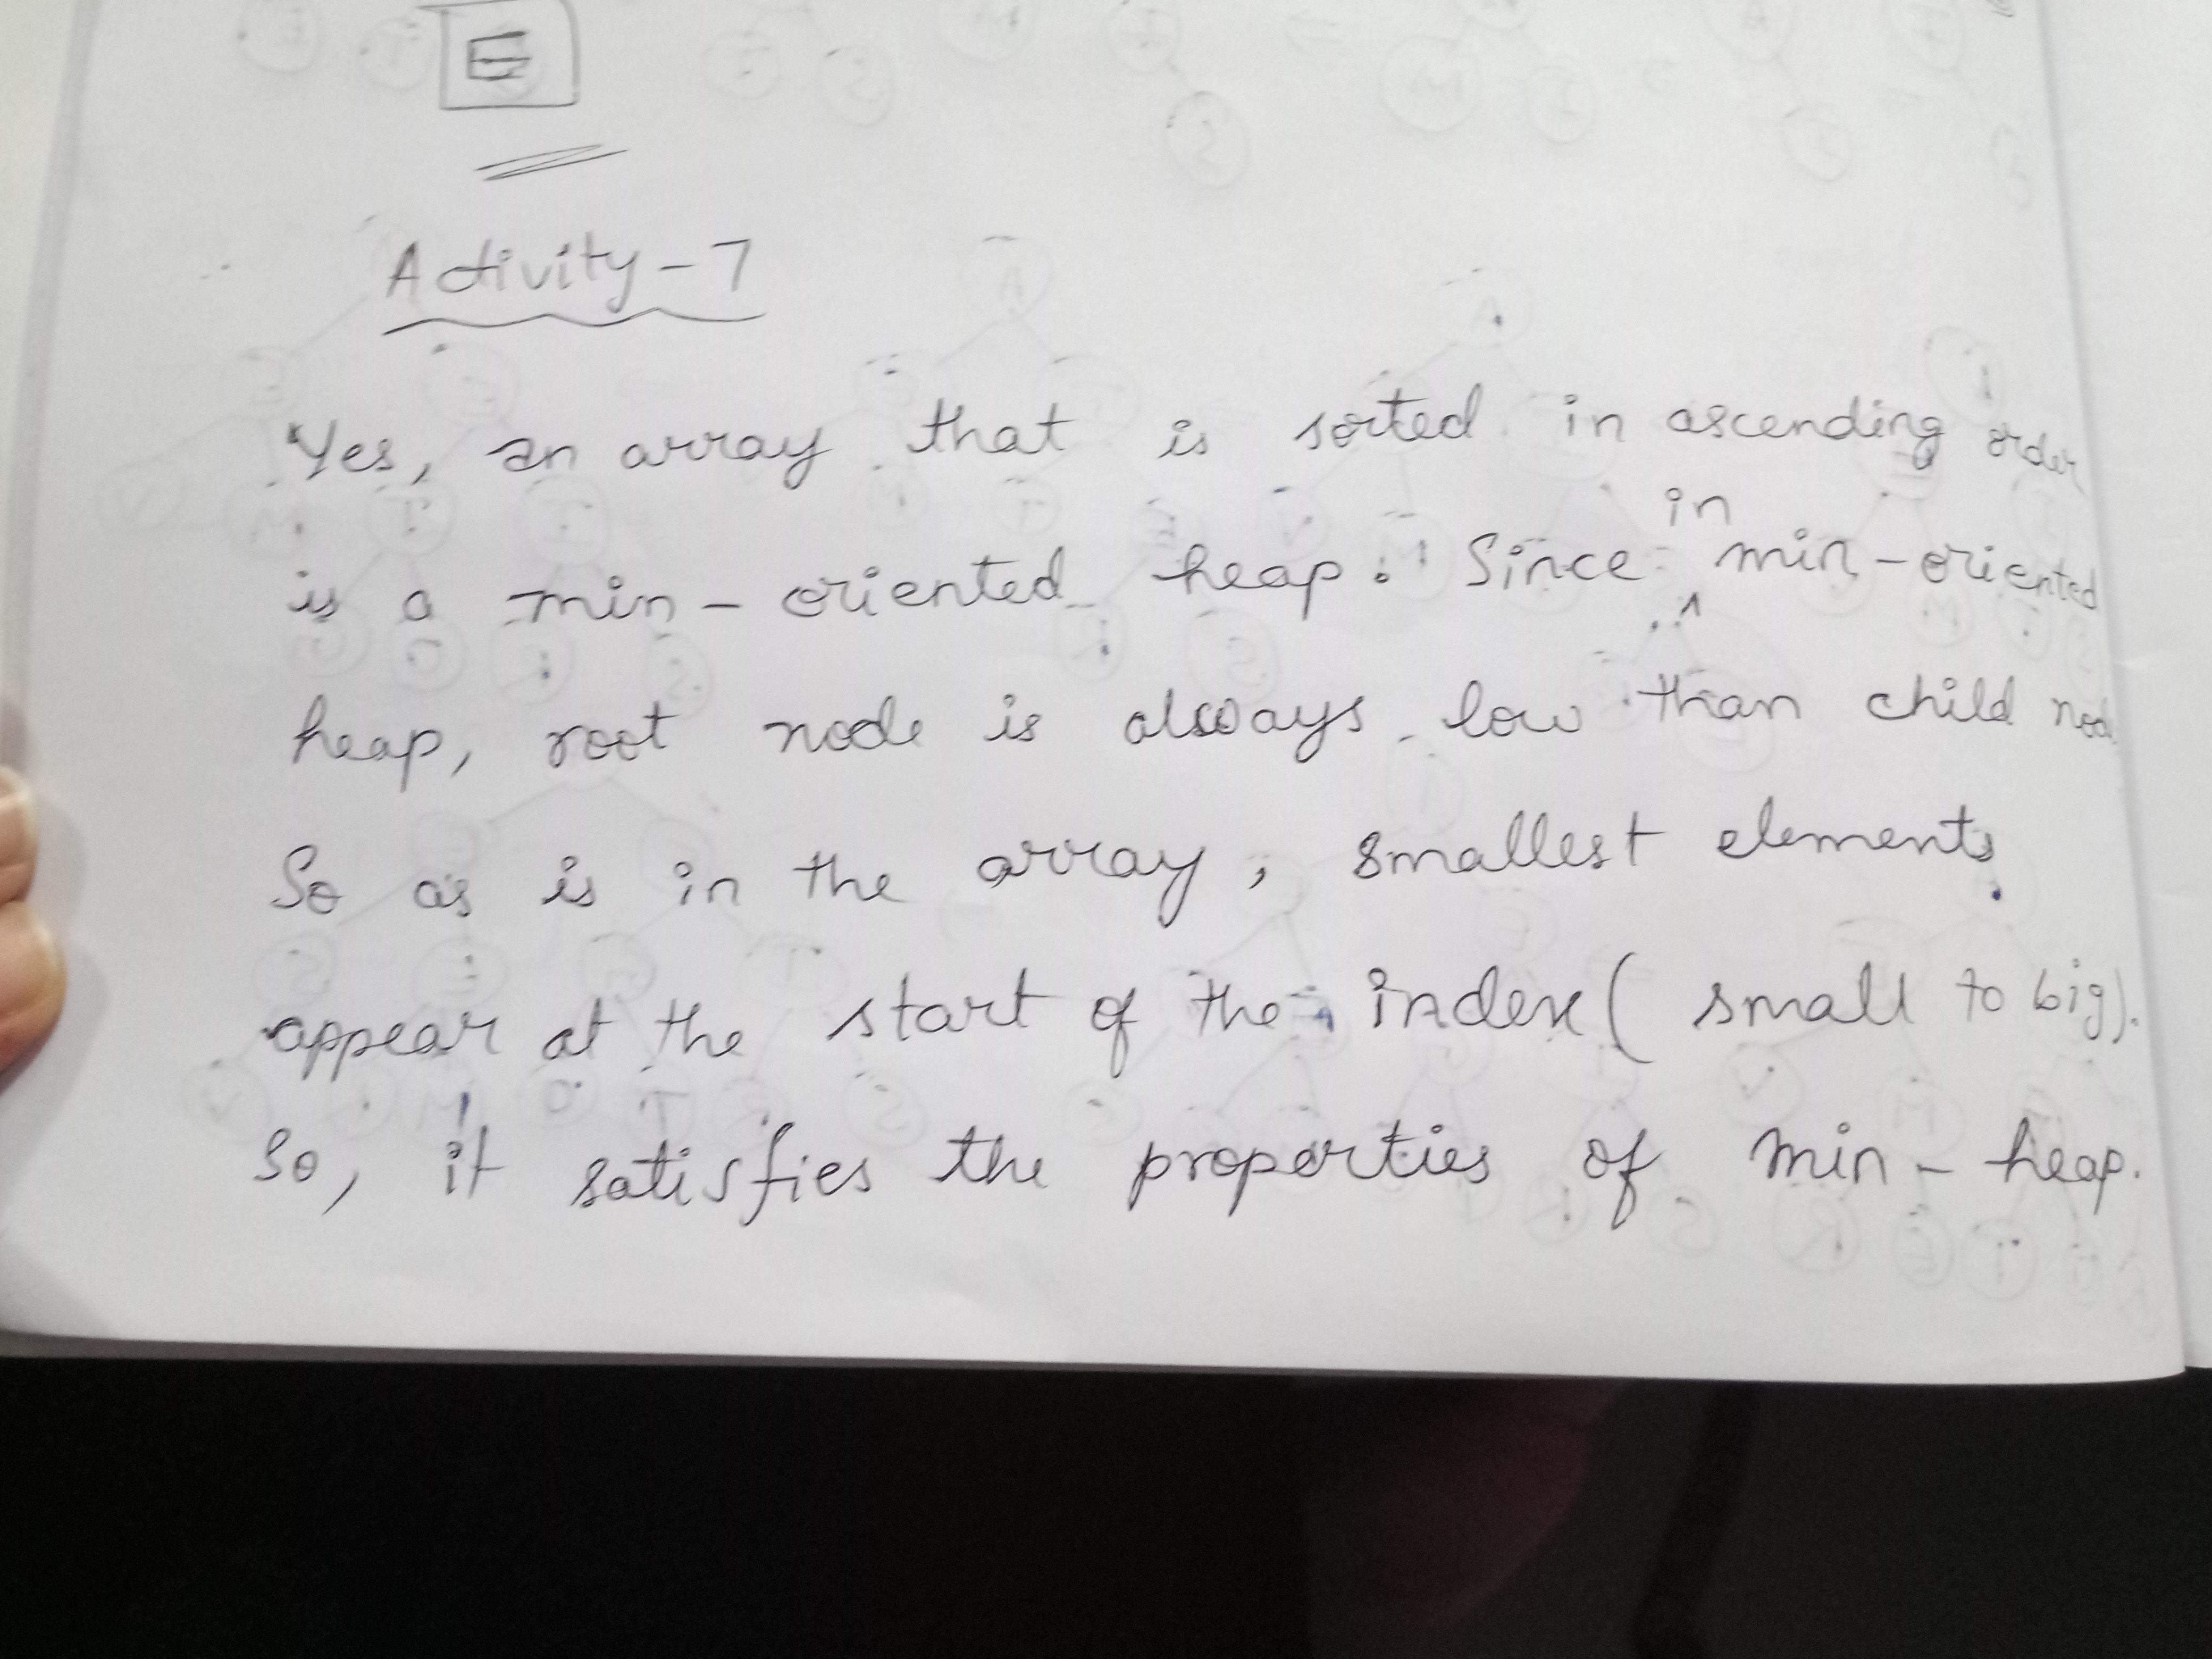 E
Activity-7
Yes, an array that is sorted in ascending order
is a min-oriented heap. Since in min-oriented
heap, root node is always low than child nod
So as is in the array, smallest elements
appear at the start of the index (small to big).
So, it satisfies the properties of min-heap.